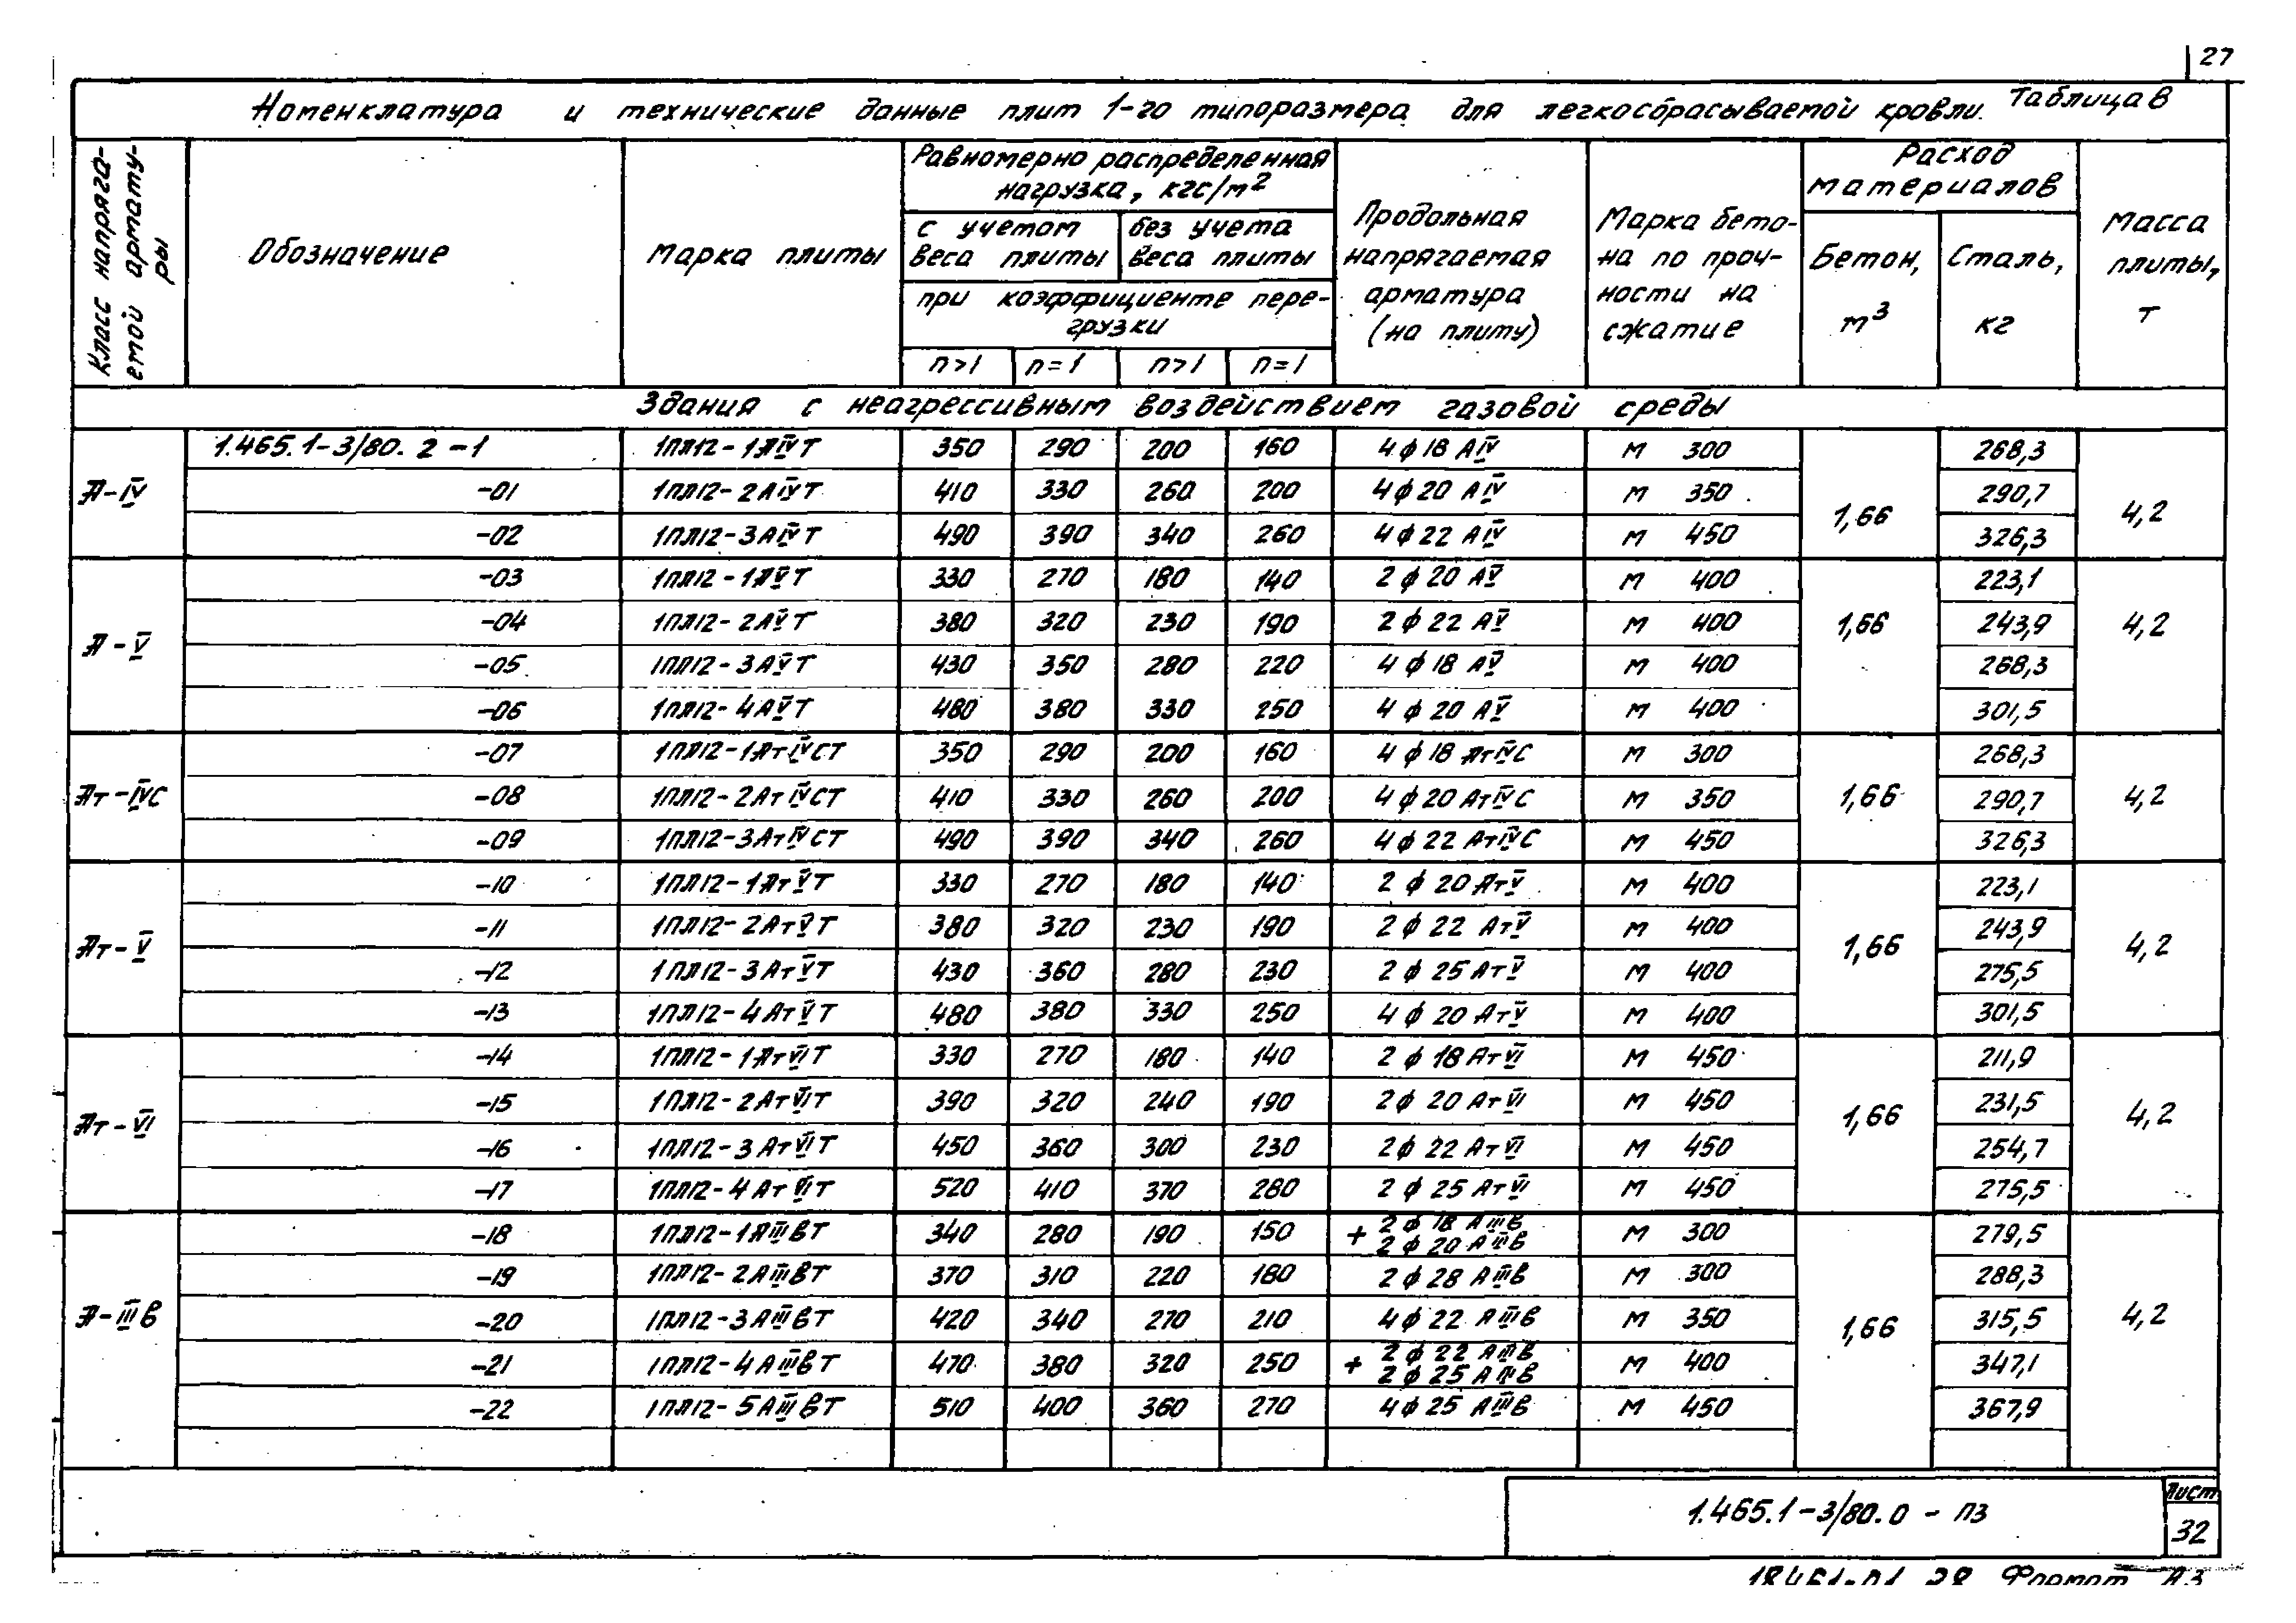 27
Номенклатура и технические данные плит 1-го типоразмера для легкосбрасываемой кровли. Таблица 8
Класс напряга-
емой армату-
ры
Обозначение
Марка плиты
Равномерно распределенная
нагрузка, кгс/м²
с учетом
веса плиты
без учета
веса плиты
при коэффициенте пере-
грузки
n>1 n=1 n>1 n=1
Продольная
напрягаемая
арматура
(на плиту)
Марка бето-
на по проч-
ности на
сжатие
Расход
материалов
Бетон,
м³
Сталь,
кг
Масса
плиты,
т
Здания с неагрессивным воздействием газовой среды
А-IV
1.465.1-3/80.2-1 1ПЛ12-1АIVТ 350 290 200 160 4ф18 АIV М 300 268,3
-01 1ПЛ12-2АIVТ 410 330 260 200 4ф20 АIV М 350 290,7
1,66 4,2
-02 1ПЛ12-3АIVТ 490 390 340 260 4ф22 АIV М 450 326,3
А-V
-03 1ПЛ12-1АVТ 330 270 180 140 2ф20 АV М 400 223,1
-04 1ПЛ12-2АVТ 380 320 230 190 2ф22 АV М 400 1,66 243,9 4,2
-05 1ПЛ12-3АVТ 430 350 280 220 4ф18 АV М 400 268,3
-06 1ПЛ12-4АVТ 480 380 330 250 4ф20 АV М 400 301,5
-07 1ПЛ12-1АтIVСТ 350 290 200 160 4ф18 АтIVС М 300 268,3
Ат-IVС -08 1ПЛ12-2АтIVСТ 410 330 260 200 4ф20 АтIVС М 350 1,66 290,7 4,2
-09 1ПЛ12-3АтIVСТ 490 390 340 260 4ф22 АтIVС М 450 326,3
-10 1ПЛ12-1АтVТ 330 270 180 140 2ф20 АтV М 400 223,1
-11 1ПЛ12-2АтVТ 380 320 230 190 2ф22 АтV М 400 243,9
Ат-V 1,66 4,2
-12 1ПЛ12-3АтVТ 430 360 280 230 2ф25 АтV М 400 275,5
-13 1ПЛ12-4АтVТ 480 380 330 250 4ф20 АтV М 400 301,5
-14 1ПЛ12-1АтVIТ 330 270 180 140 2ф18 АтVI М 450 211,9
-15 1ПЛ12-2АтVIТ 390 320 240 190 2ф20 АтVI М 450 231,5
Ат-VI 1,66 4,2
-16 1ПЛ12-3АтVIТ 450 360 300 230 2ф22 АтVI М 450 254,7
-17 1ПЛ12-4АтVIТ 520 410 370 280 2ф25 АтVI М 450 275,5
-18 1ПЛ12-1АIIIвТ 340 280 190 150 + 2ф18 АIIIв 2ф20 АIIIв М 300 279,5
-19 1ПЛ12-2АIIIвТ 370 310 220 180 2ф28 АIIIв М 300 288,3
А-IIIв -20 1ПЛ12-3АIIIвТ 420 340 270 210 4ф22 АIIIв М 350 1,66 315,5 4,2
-21 1ПЛ12-4АIIIвТ 470 380 320 250 + 2ф22 АIIIв 2ф25 АIIIв М 400 347,1
-22 1ПЛ12-5АIIIвТ 510 400 360 270 4ф25 АIIIв М 450 367,9
1.465.1-3/80.0 - ПЗ
Лист
32
Формат А3